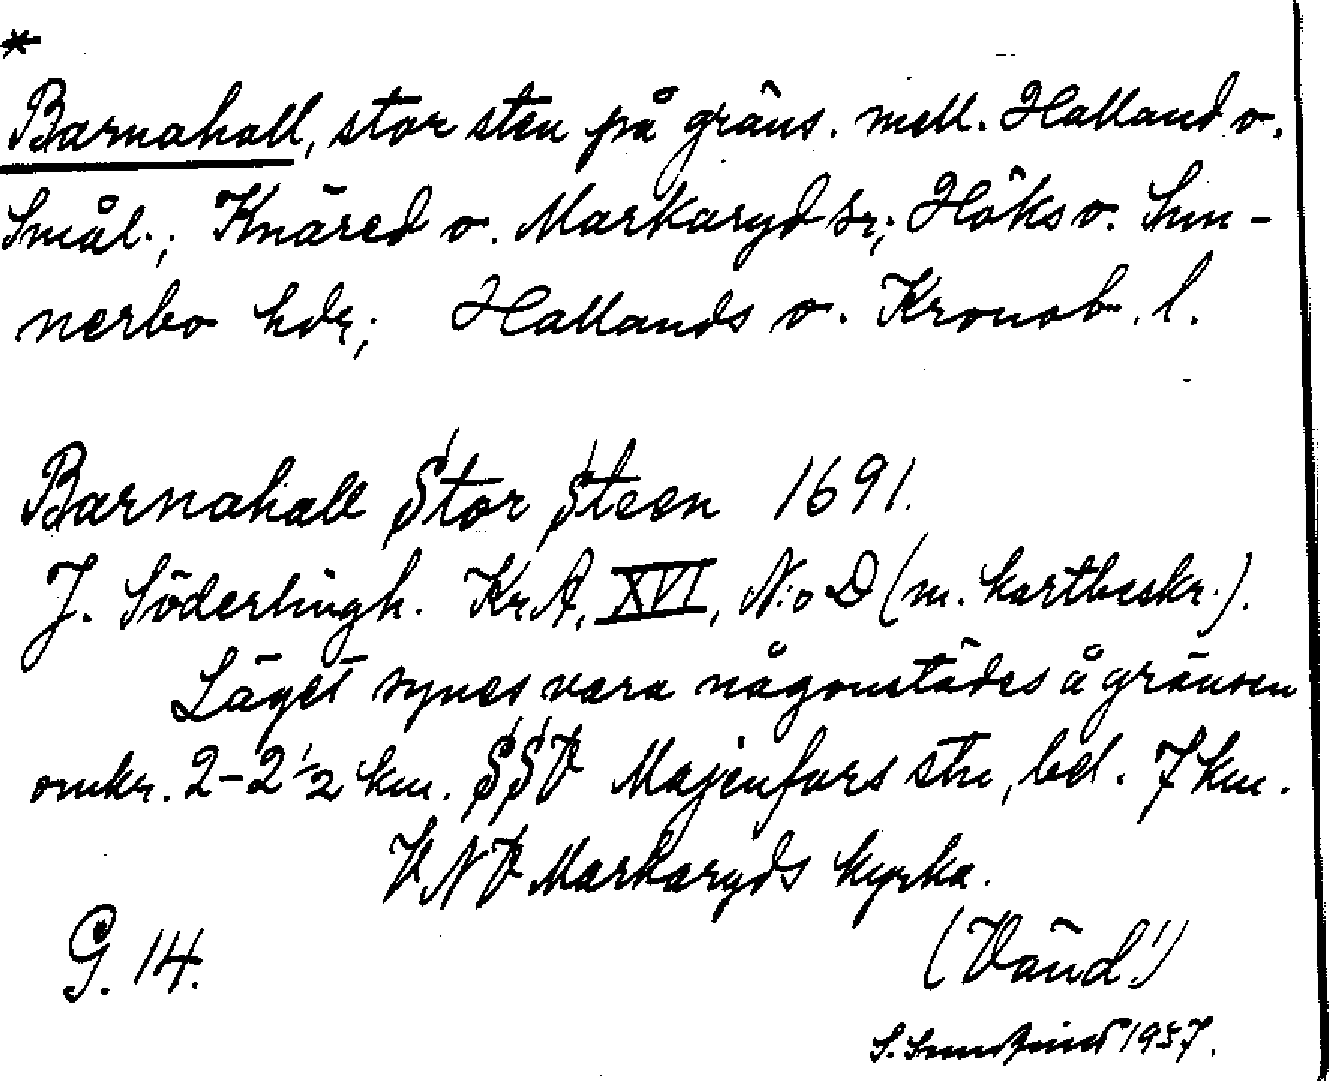 *
Barnahall, stor sten på gräns. mell. Halland o.
Smål.; Knäred o. Markaryd sr; Höks o. Sun-
nerbo hdr; Hallands o. Kronob. l.
Barnahall Stor Steen 1691.
J. Söderlingh. Kr.A. XVI, N:o D (m. kartbeskr.).
Läget synes vara någonstädes å gränsen
omkr. 2-2 1/2 km. SSV Majenfors stn, bel. 7 km.
VNV Markaryds kyrka.
G. 14.
(Vänd!)
S. 1937.